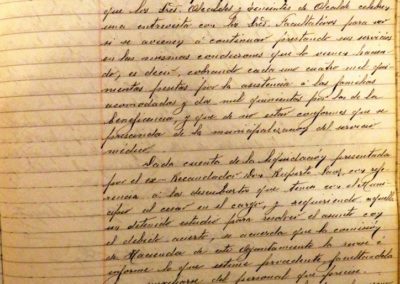 que los Sres. Alcaldes y Tenientes de Alcalde celebren
una entrevista con los Sres. Facultativos para ver
si se avienen á continuar prestando sus servicios
en las mismas condiciones que lo vienen hacien-
do, es decir, cobrando cada uno cuatro mil qui-
nientas pesetas por la asistencia á las familias
acomodadas y dos mil quinientas por las de la
beneficencia, y que de no estar conformes que se
prescinda de la municipalización del servicio
médico.
Dada cuenta de la liquidación presentada
por el ex-Recaudador Don Ruperto con refe-
rencia á los descubiertos que tenía con el Muni-
cipio al cesar en el cargo, y requiriendo aquella
un detenido estudio para resolver el asunto con
el debido acierto, se acuerda que la comisión
de Hacienda de este Ayuntamiento la revise é
informe lo que estime procedente, facultándola
del personal que precise